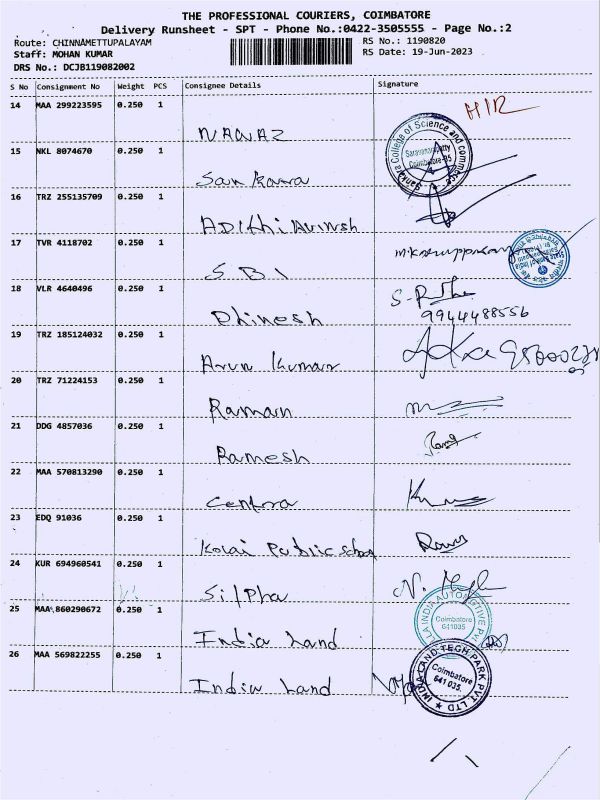 THE PROFESSIONAL COURIERS, COIMBATORE
Delivery Runsheet - SPT - Phone No.:0422-3505555 - Page No.:2
Route: CHINNAMETTUPALAYAM RS No.: 1190820
Staff: MOHAN KUMAR RS Date: 19-Jun-2023
DRS No.: DCJB119082002
S No Consignment No Weight PCS Consignee Details Signature
14 MAA 299223595 0.250 1
NANAZ
15 NKL 8074670 0.250 1
Sankara
Sankara College of Science and commerce
Saravanampatty
Coimbatore-35
16 TRZ 255135709 0.250 1
Adithi Avinsh
17 TVR 4118702 0.250 1
SBI
18 VLR 4640496 0.250 1
Dhinesh
9944488556
19 TRZ 185124032 0.250 1
Arun Kumar
20 TRZ 71224153 0.250 1
Raman
21 DDG 4857036 0.250 1
Ramesh
22 MAA 570813290 0.250 1
Centra
23 EDQ 91036 0.250 1
Kovai Public School
24 KUR 694960541 0.250 1
Silpha
25 MAA 860290672 0.250 1
India Land
INDIA AUTOMOTIVE PVT
Coimbatore
641035
26 MAA 569822255 0.250 1
India Land
INDIA LAND TECH PARK PVT LTD
Coimbatore
641 035.